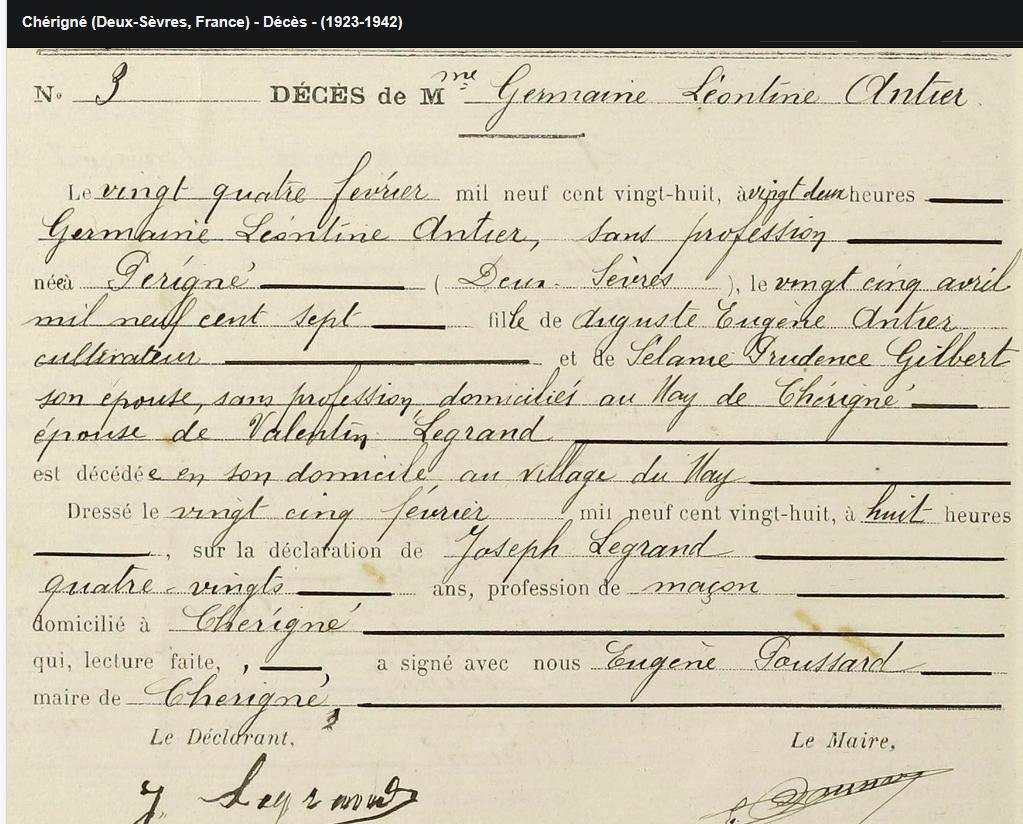 Chérigné (Deux-Sèvres, France) - Décès - (1923-1942)
N° 3 DÉCÈS de Mme Germaine Léontine Antier
Le vingt quatre fevrier mil neuf cent vingt-huit, à vingt deux heures
Germaine Léontine Antier, sans profession
née à Périgné ( Deux-Sèvres ), le vingt cinq avril
mil neuf cent sept fille de Auguste Eugène Antier
cultivateur et de Sélanie Prudence Gilbert
son épouse, sans profession, domiciliés au Nay de Chérigné
épouse de Valentin Legrand
est décédée en son domicile au village du Nay
Dressé le vingt cinq février mil neuf cent vingt-huit, à huit heures
, sur la déclaration de Joseph Legrand
quatre-vingts ans, profession de maçon
domicilié à Chérigné
qui, lecture faite, , a signé avec nous Eugène Poussard
maire de Chérigné
Le Déclarant, Le Maire,
J. Legrand